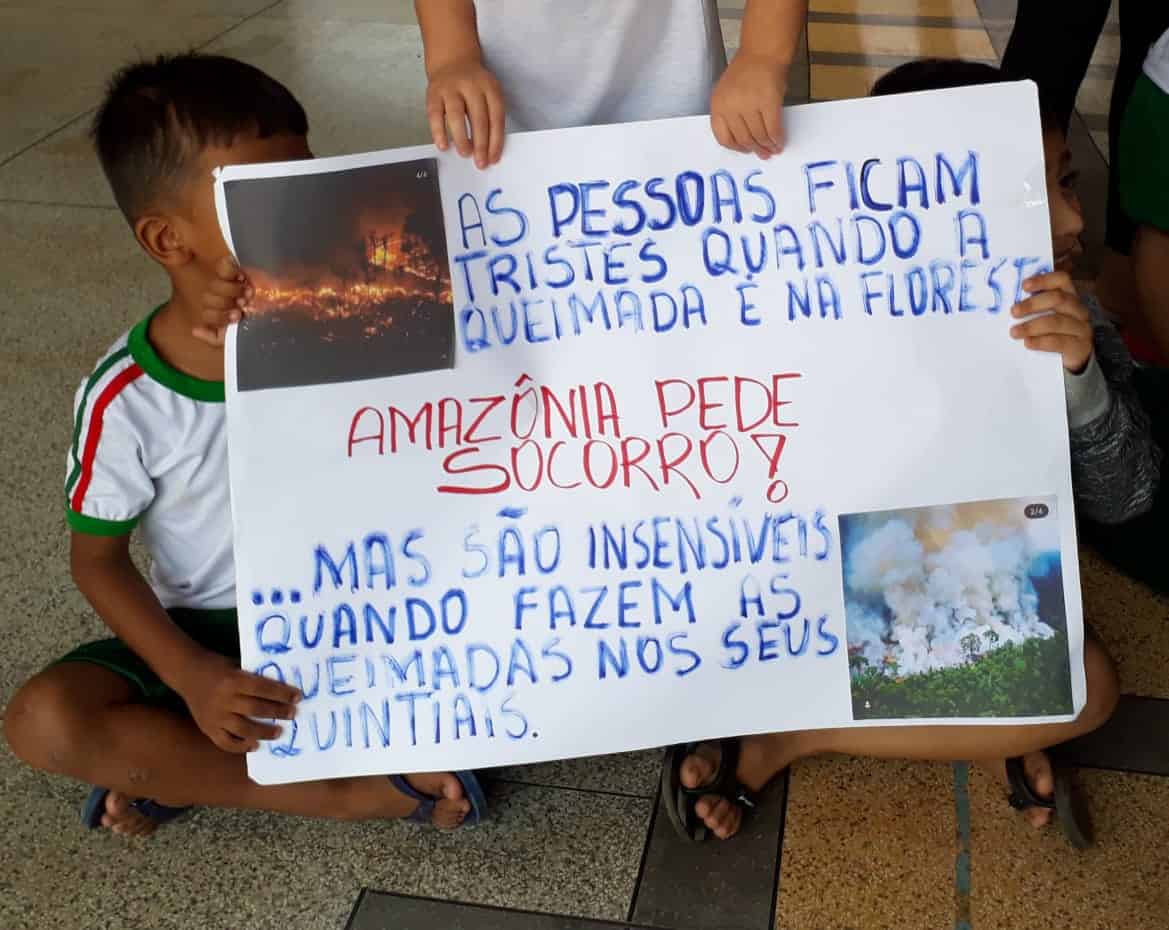 1/4
AS PESSOAS FICAM
TRISTES QUANDO A
QUEIMADA É NA FLORESTA
AMAZÔNIA PEDE
SOCORRO!
...MAS SÃO INSENSÍVEIS
QUANDO FAZEM AS
QUEIMADAS NOS SEUS
QUINTIAIS.
2/4